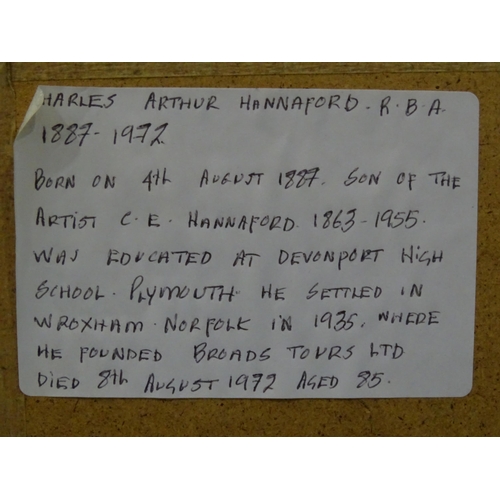 HARLES ARTHUR HANNAFORD - R.B.A.
1887-1972
BORN ON 4th AUGUST 1887. SON OF THE
ARTIST C.E. HANNAFORD. 1863-1955.
WAS EDUCATED AT DEVONPORT HIGH
SCHOOL. PLYMOUTH. HE SETTLED IN
WROXHAM. NORFOLK IN 1935, WHERE
HE FOUNDED BROADS TOURS LTD
DIED 8th AUGUST 1972 AGED 85.